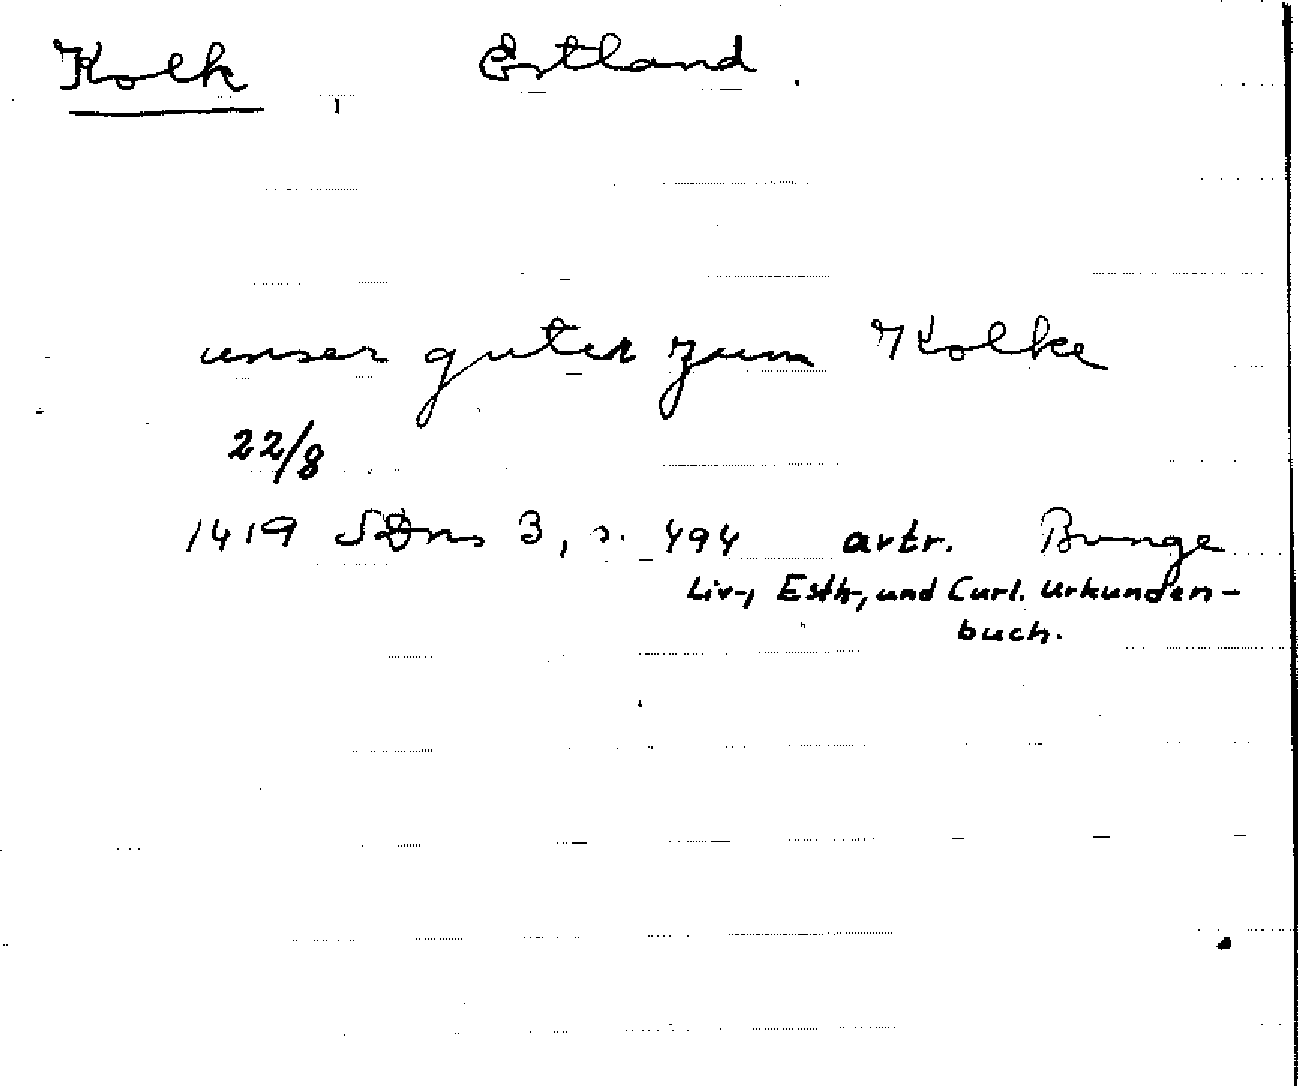 Kolk Estland
unser guter zum Kolke
22/8
1419 SDns 3, s. 494 avtr. Bunge
Liv-, Esth-, und Curl. Urkunden-
buch.